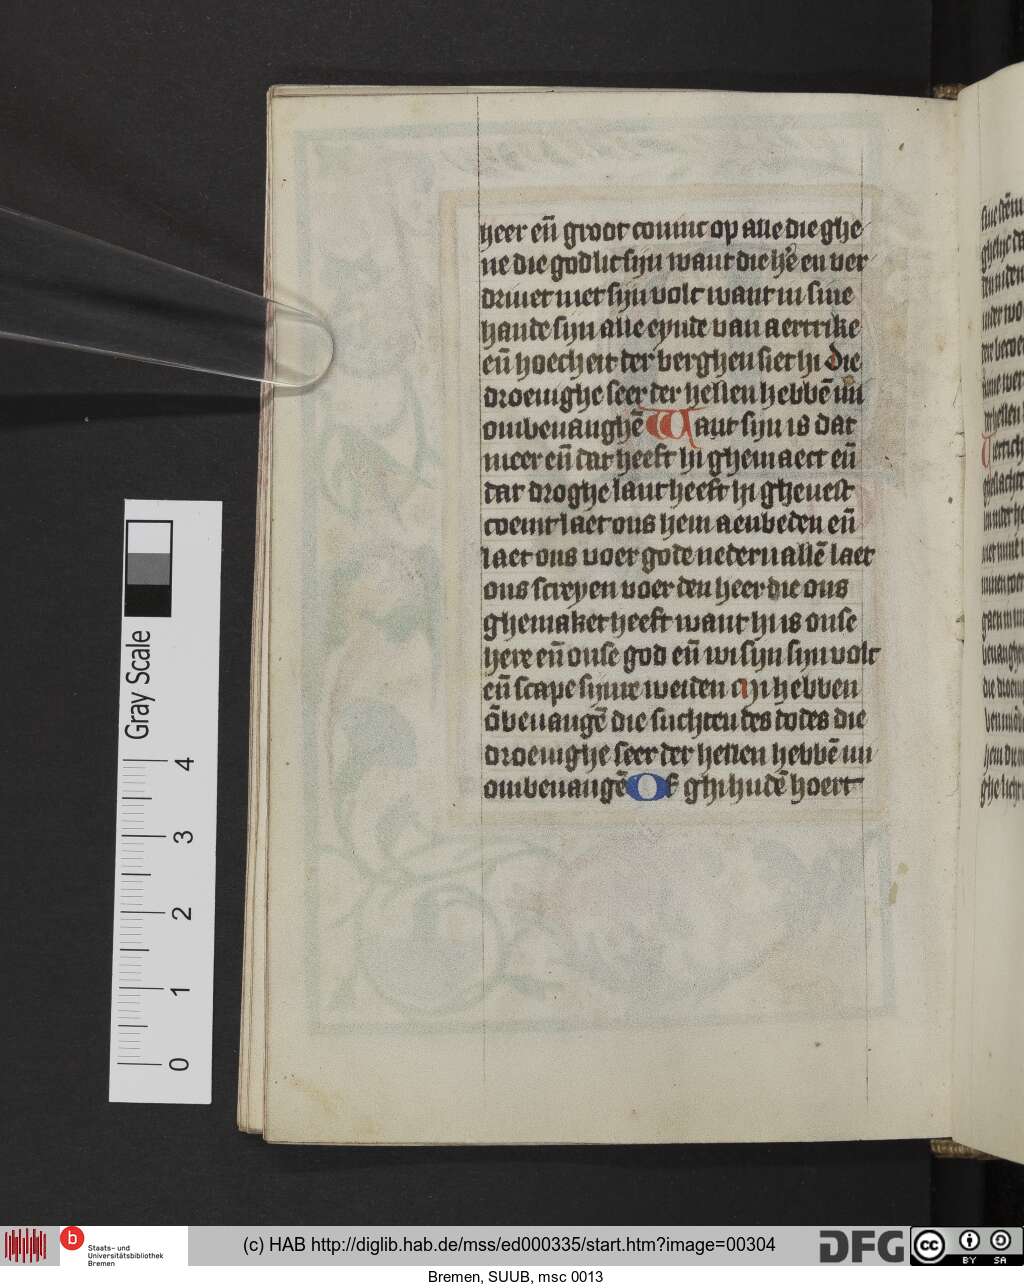 heer en̄ groot coninc op alle die ghe
ne die godlic sijn want die he̅ en ver
drivet niet sijn volc want in sine
hande sijn alle eynde van aertrike
en̄ hoecheit der berghen siet hi die
droevighe seer der hellen hebbē mi
ombevanghē Want sijn is dat
meer en̄ dat heeft hi ghemaect en̄
dat droghe lant heeft hi ghevest
coemt laet ons hem aenbeden en̄
laet ons voer gode nedervallē laet
ons screyen voer den heer die ons
ghemaket heeft want hi is onse
here en̄ onse god en̄ wi sijn sijn volc
en̄ scape sijnre weiden Mi hebben
ōbevangē die suchten des dodes die
droevighe seer der hellen hebbē mi
ombevangē Of ghi hudē hoert
Gray Scale
4
3
2
1
0
b
Staats- und
Universitätsbibliothek
Bremen
(c) HAB http://diglib.hab.de/mss/ed000335/start.htm?image=00304
DFG
cc
BY SA
Bremen, SUUB, msc 0013